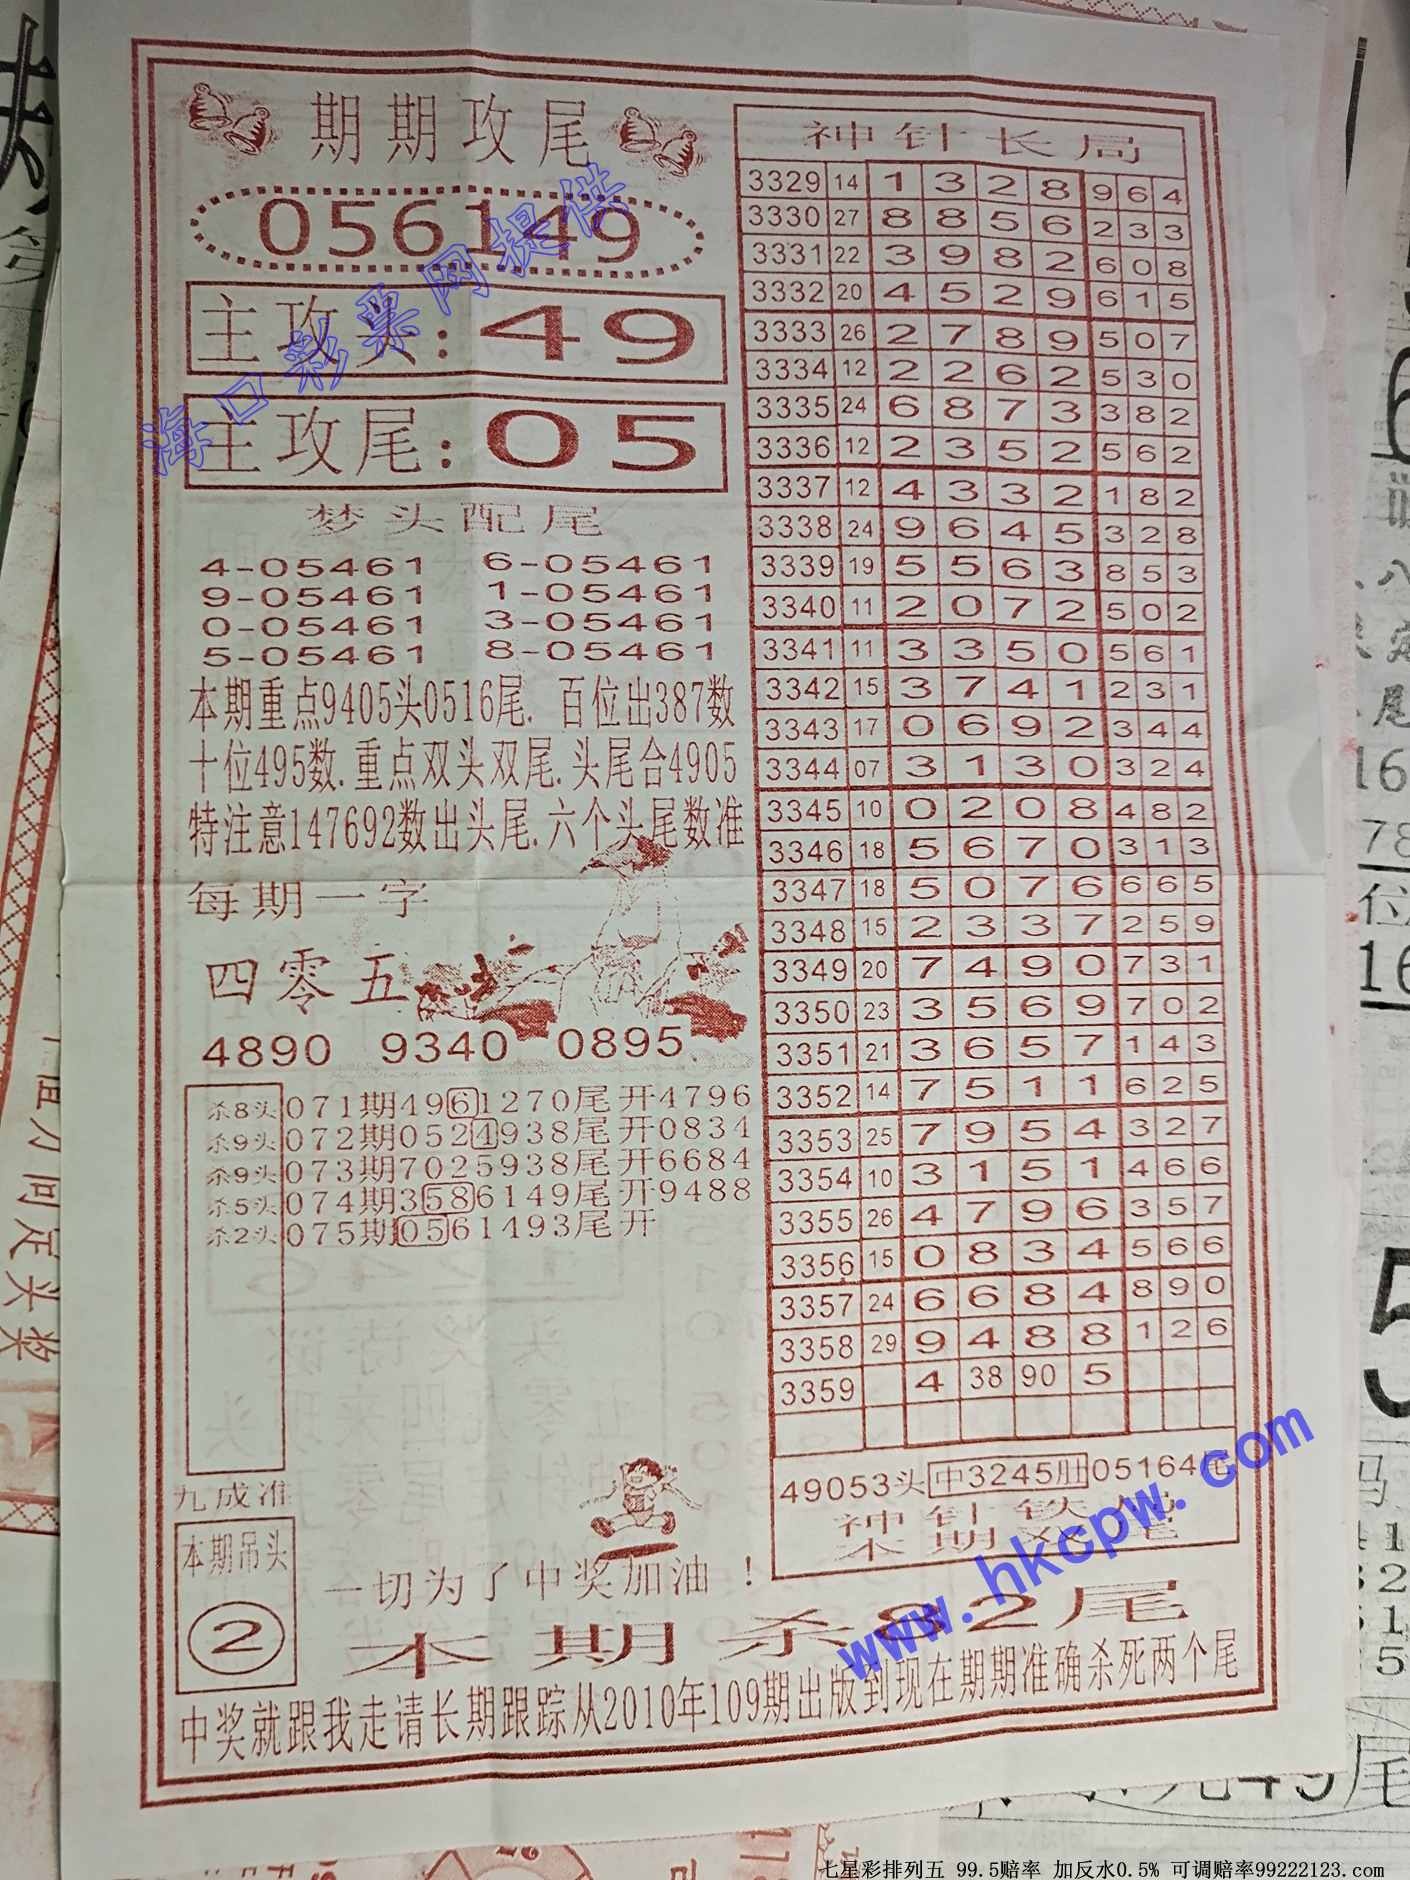 期期攻尾
056149
主攻头:49
主攻尾:05
梦头配尾
4-05461 6-05461
9-05461 1-05461
0-05461 3-05461
5-05461 8-05461
本期重点9405头0516尾.百位出387数
十位495数.重点双头双尾.头尾合4905
特注意147692数出头尾.六个头尾数准
每期一字
四零五
4890 9340 0895
杀8头 071期4961270尾开4796
杀9头 072期0524938尾开0834
杀9头 073期7025938尾开6684
杀5头 074期3586149尾开9488
杀2头 075期0561493尾开
九成准
本期吊头
2
一切为了中奖加油!
神针长局
3329 14 1 3 2 8 9 6 4
3330 27 8 8 5 6 2 3 3
3331 22 3 9 8 2 6 0 8
3332 20 4 5 2 9 6 1 5
3333 26 2 7 8 9 5 0 7
3334 12 2 2 6 2 5 3 0
3335 24 6 8 7 3 3 8 2
3336 12 2 3 5 2 5 6 2
3337 12 4 3 3 2 1 8 2
3338 24 9 6 4 5 3 2 8
3339 19 5 5 6 3 8 5 3
3340 11 2 0 7 2 5 0 2
3341 11 3 3 5 0 5 6 1
3342 15 3 7 4 1 2 3 1
3343 17 0 6 9 2 3 4 4
3344 07 3 1 3 0 3 2 4
3345 10 0 2 0 8 4 8 2
3346 18 5 6 7 0 3 1 3
3347 18 5 0 7 6 6 6 5
3348 15 2 3 3 7 2 5 9
3349 20 7 4 9 0 7 3 1
3350 23 3 5 6 9 7 0 2
3351 21 3 6 5 7 1 4 3
3352 14 7 5 1 1 6 2 5
3353 25 7 9 5 4 3 2 7
3354 10 3 1 5 1 4 6 6
3355 26 4 7 9 6 3 5 7
3356 15 0 8 3 4 5 6 6
3357 24 6 6 8 4 8 9 0
3358 29 9 4 8 8 1 2 6
3359 4 38 90 5
49053头中3245肚05164尾
神针铁局
本期双笔
本期杀82尾
中奖就跟我走请长期跟踪从2010年109期出版到现在期期准确杀死两个尾
海口彩票网提供
www.hkcpw.com
七星彩排列五 99.5赔率 加反水0.5% 可调赔率99222123.com